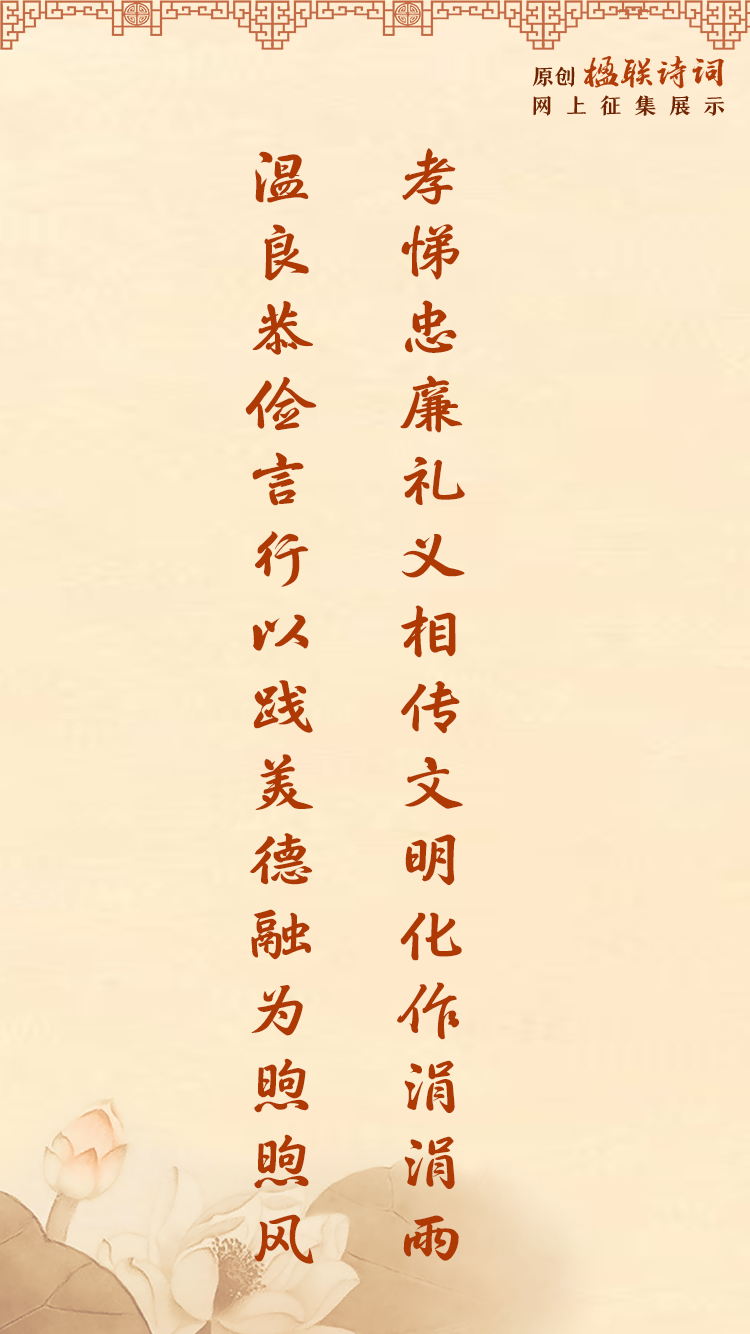 原创 楹联诗词
网上征集展示
孝悌忠廉礼义相传文明化作涓涓雨
温良恭俭言行以践美德融为煦煦风